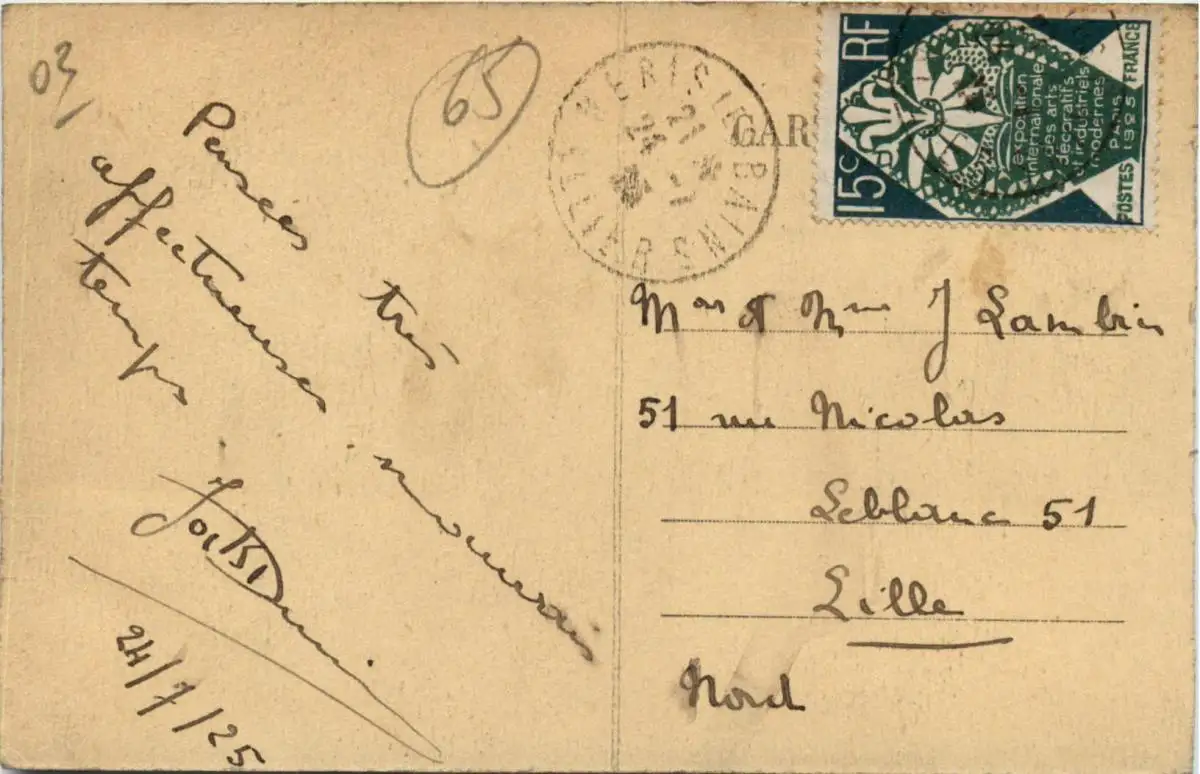 03
65
Pensées très
affectueuses. mauvais
temps.
24/7/25
NERIS LES BAINS
ALLIER
21
24
CAR
RF
15c
exposition
internationale
des arts
décoratifs
et industriels
modernes
PARIS
1925
POSTES FRANCE
Mr et Mme J Lambin
51 rue Nicolas
Leblanc 51
Lille
Nord